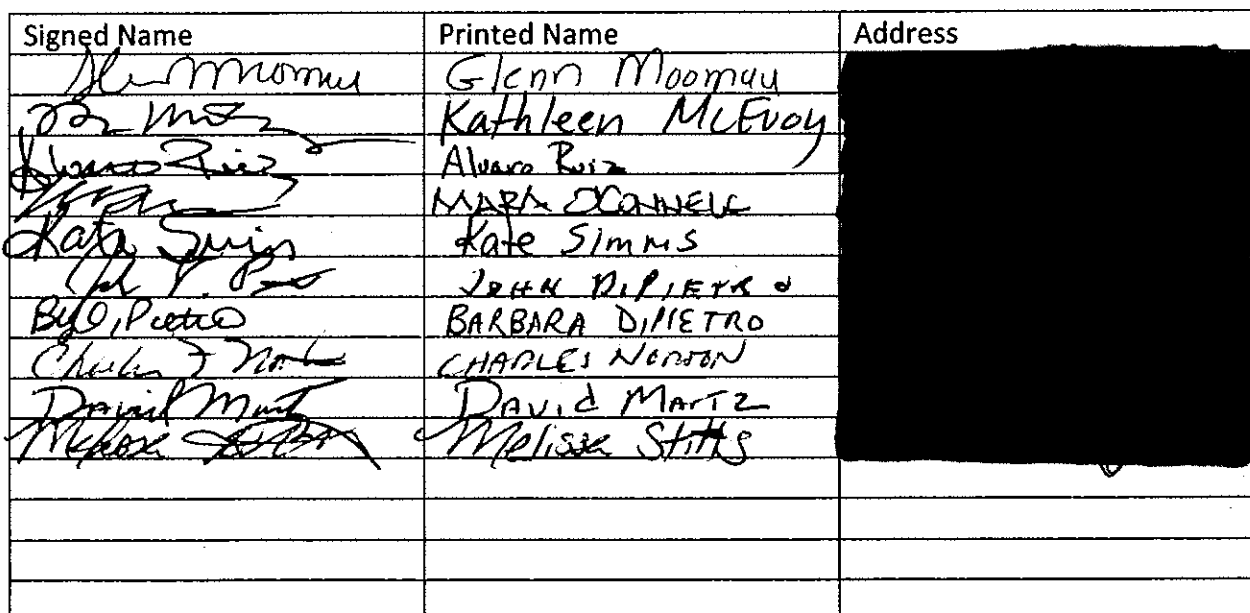 Signed Name Printed Name Address
Glenn Moomau
Kathleen McEvoy
Alvaro Ruiz Alvaro Ruiz
MARA O'CONNELL
Kate Simms Kate Simms
JOHN DIPIETRO
B DiPietro BARBARA DIPIETRO
Charles F Norton CHARLES NORTON
David Martz DAVId MARTZ
Melissa Stitts Melissa Stitts